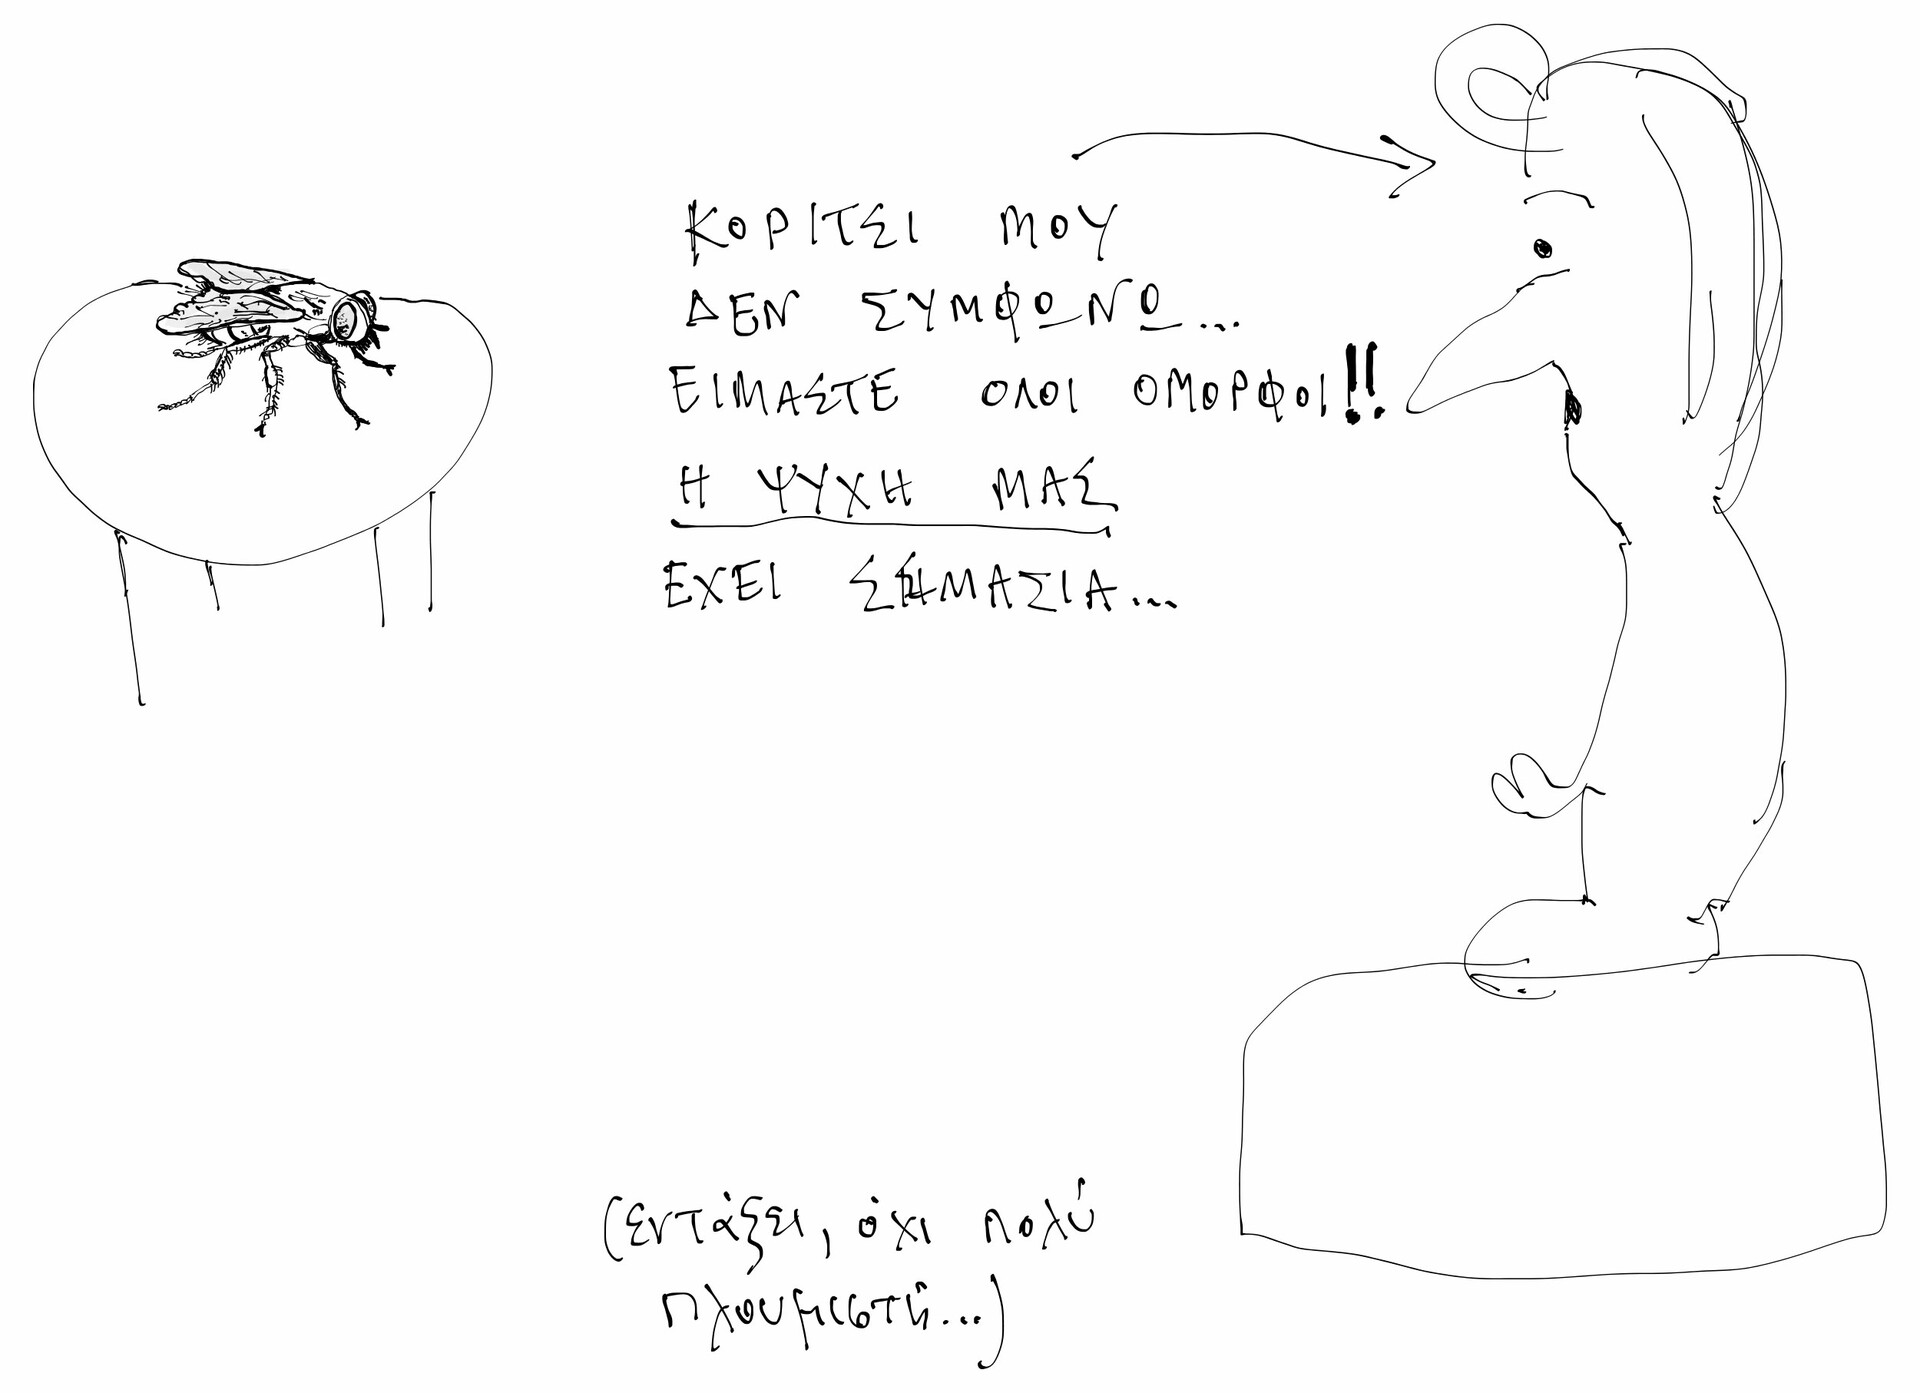 ΚΟΡΙΤΣΙ ΜΟΥ
ΔΕΝ ΣΥΜΦΩΝΩ...
ΕΙΜΑΣΤΕ ΟΛΟΙ ΟΜΟΡΦΟΙ!!
Η ΨΥΧΗ ΜΑΣ
ΕΧΕΙ ΣΗΜΑΣΙΑ...
(εντάξει, όχι πολύ
πλουμιστή...)